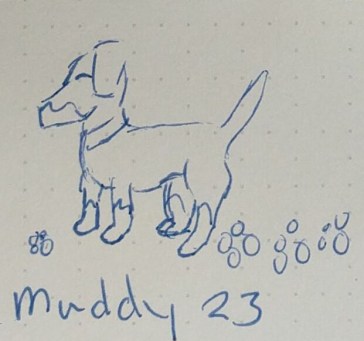 muddy 23